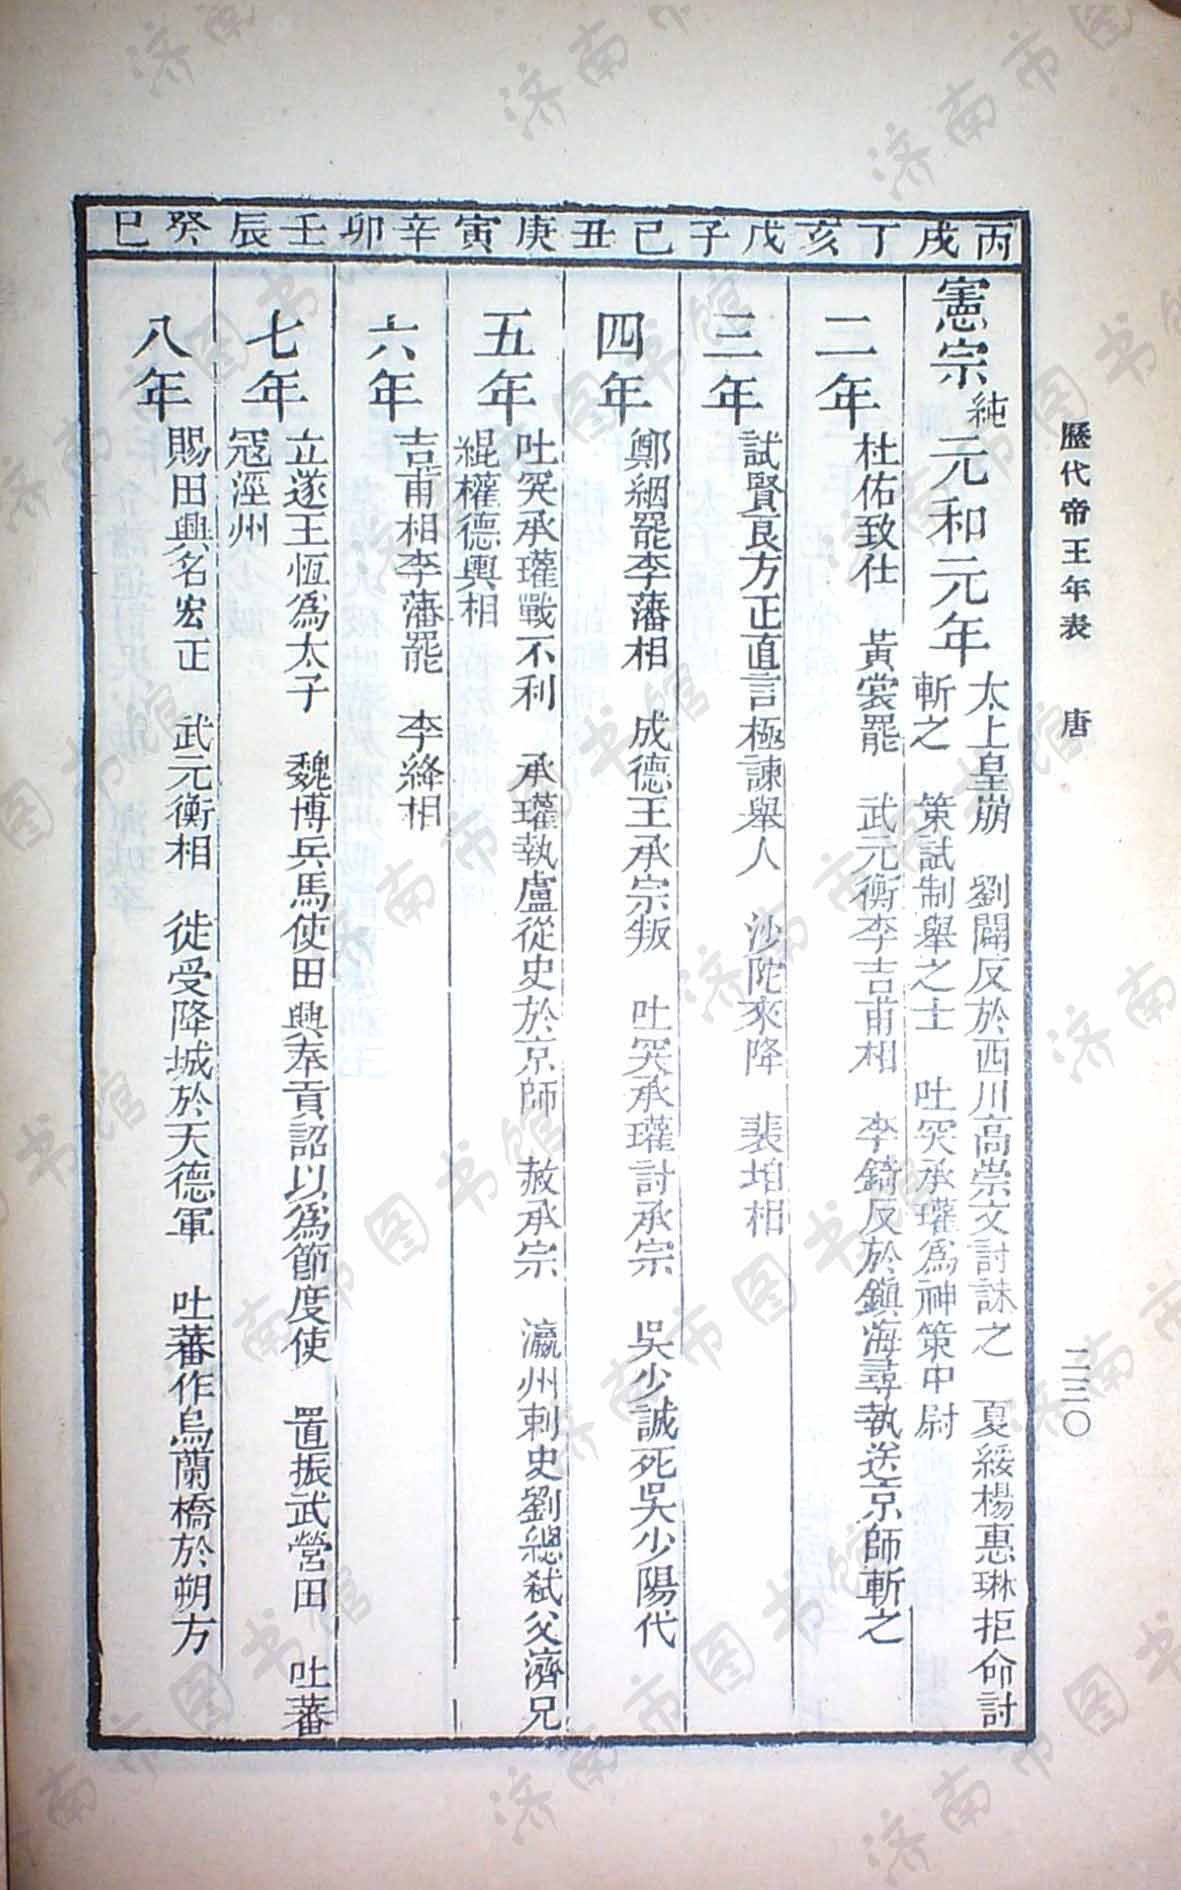 歷代帝王年表　唐　二三〇
丙戌　丁亥　戊子　己丑　庚寅　辛卯　壬辰　癸巳
憲宗純元和元年
太上皇崩　劉闢反於西川高崇文討誅之　夏綏楊惠琳拒命討
斬之　策試制舉之士　吐突承璀爲神策中尉
二年
杜佑致仕　黃裳罷　武元衡李吉甫相　李錡反於鎮海尋執送京師斬之
三年
試賢良方正直言極諫舉人　沙陀來降　裴垍相
四年
鄭絪罷李藩相　成德王承宗叛　吐突承璀討承宗　吳少誠死吳少陽代
五年
吐突承璀戰不利　承璀執盧從史於京師　赦承宗　瀛州刺史劉總弒父濟兄
緄權德輿相
六年
吉甫相李藩罷　李絳相
七年
立遂王恆爲太子　魏博兵馬使田興奉貢詔以爲節度使　置振武營田　吐蕃
寇涇州
八年
賜田興名宏正　武元衡相　徙受降城於天德軍　吐蕃作烏蘭橋於朔方
济南市图书馆